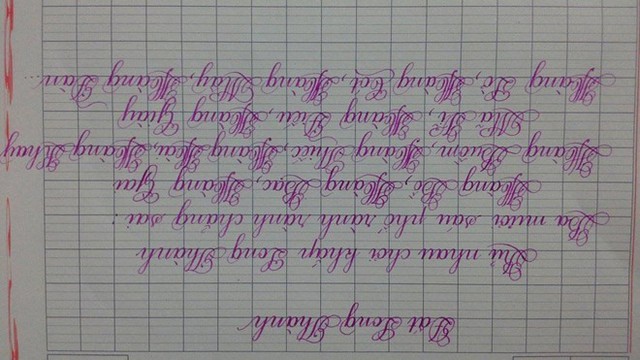 Đất Long Thành
Rủ nhau chơi khắp Long Thành
Ba mươi sáu phố rành rành chẳng sai :
Hàng Bồ, Hàng Bạc, Hàng Gai
Hàng Buồm, Hàng Thiếc, Hàng Hài, Hàng Khay
Mã Vĩ, Hàng Điếu, Hàng Giày
Hàng Lờ, Hàng Cót, Hàng Mây, Hàng Đàn...